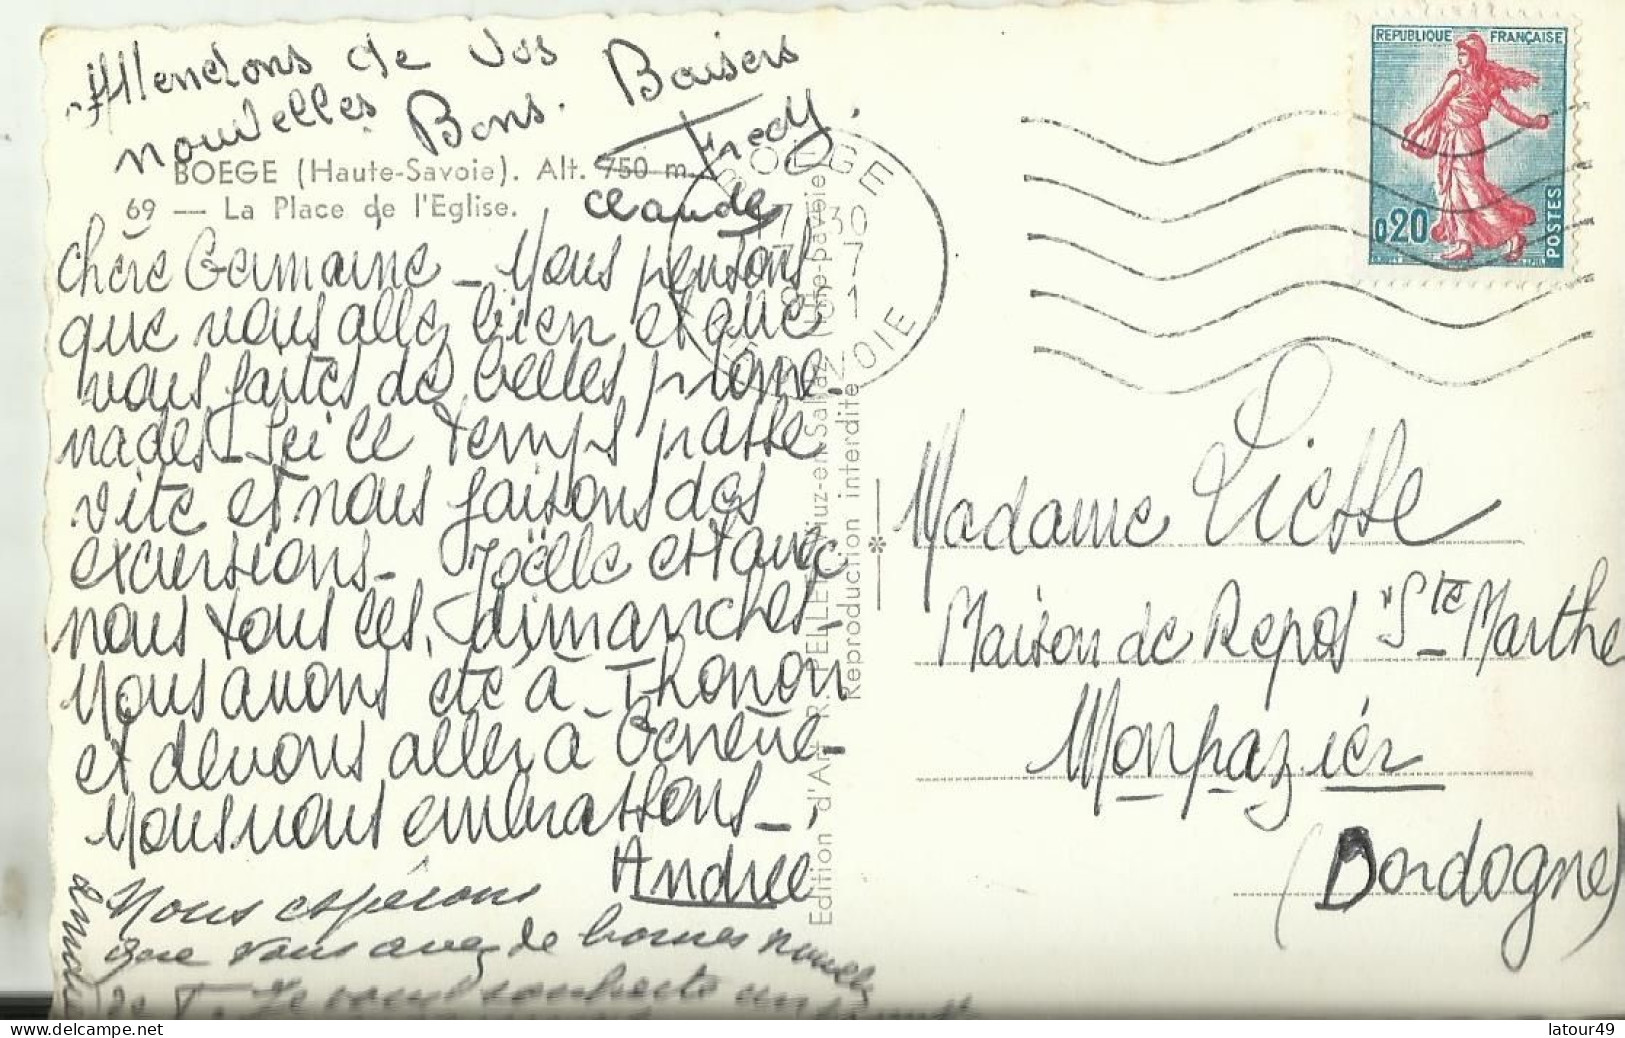 Attendons de vos
nouvelles Bons. Baisers
Fredy.
Claude
BOEGE (Haute-Savoie). Alt. 750 m.
69 — La Place de l'Eglise.
chère Germaine - Nous pensons
que vous allez bien et que
vous faites de belles prome-
nades - Ici le temps passe
vite et nous faisons des
excursions - Joëlle est avec
nous tous les dimanches -
Nous avons été à Thonon
et devons aller à Genève -
Nous vous embrassons -
Andrée
Nous espérons
que vous avez de bonnes
de T. Je vous souhaite un
Edition d'Art R. PELLET, Viuz-en-Sallaz (Hte-Savoie)
Reproduction interdite
BOEGE
17 30
7 7
SAVOIE
REPUBLIQUE FRANÇAISE
0,20
POSTES
Madame Liesse
Maison de Repos "Ste Marthe
Monpazier
(Dordogne)
latour49